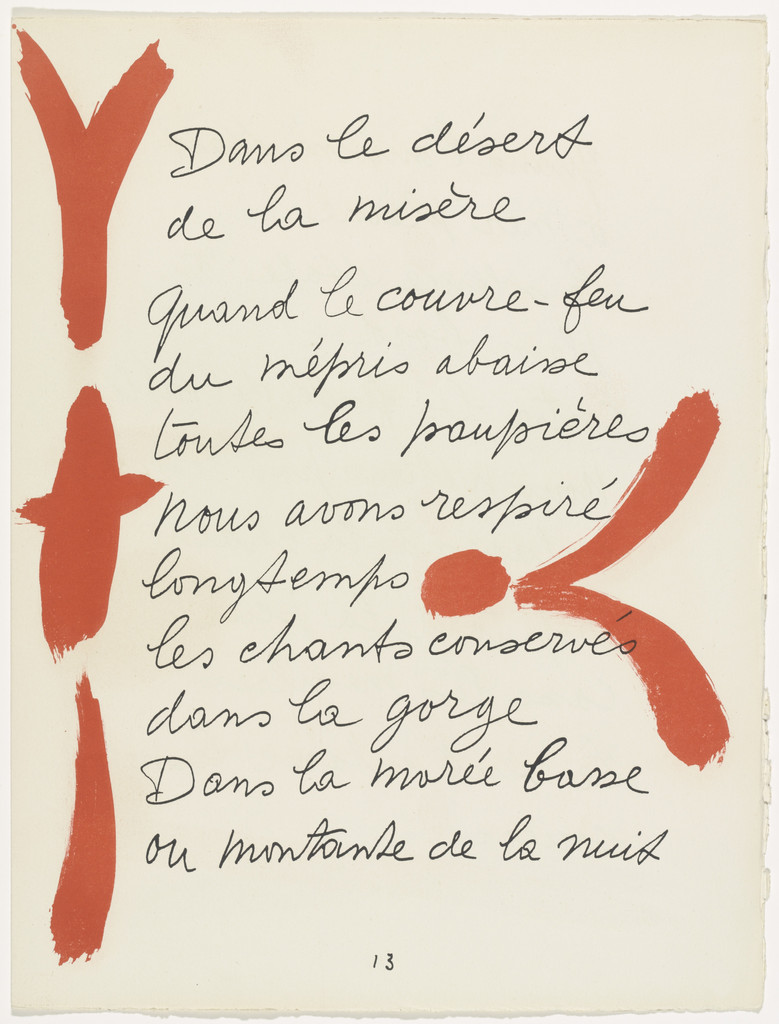 Dans le désert
de la misère
quand le couvre-feu
du mépris abaisse
toutes les paupières
nous avons respiré
longtemps
les chants conservés
dans la gorge
Dans la marée basse
ou montante de la nuit
13